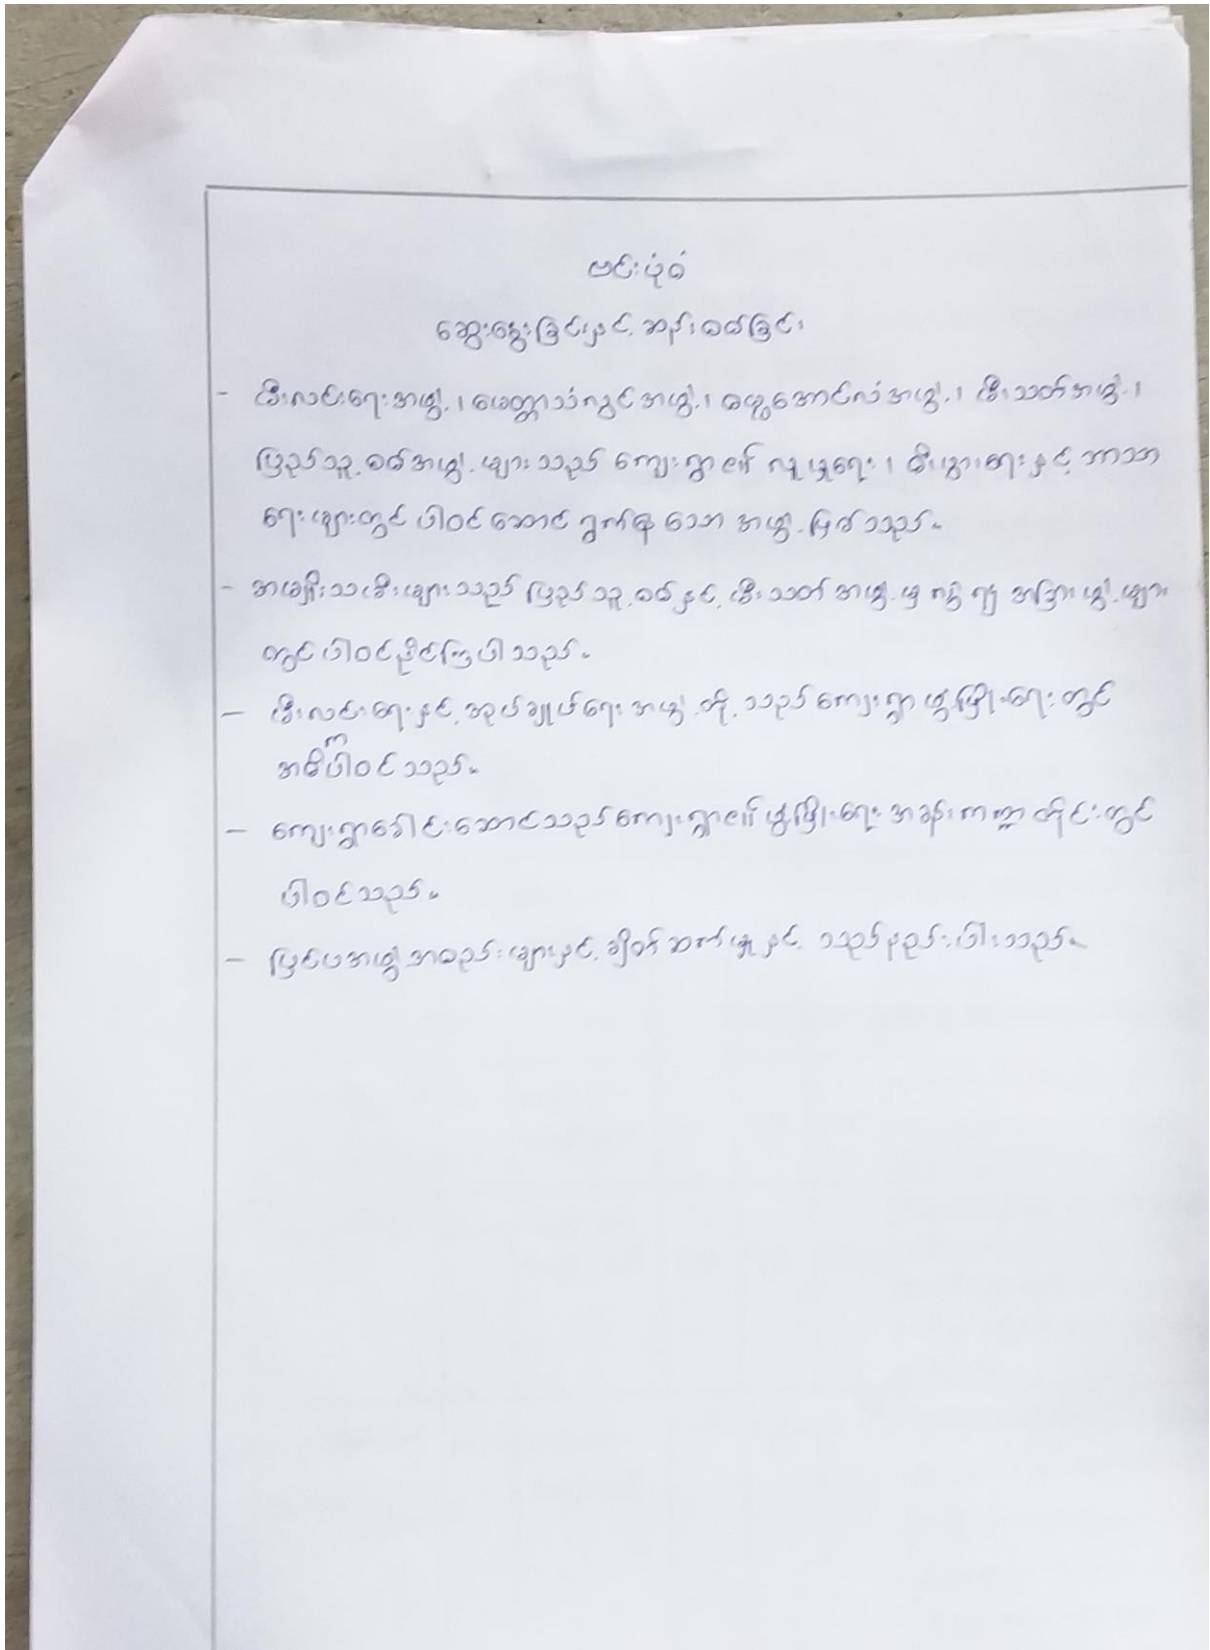 ဗင်းပုံစံ
ဆွေးနွေးခြင်းနှင့် ဆန်းစစ်ခြင်း
- မီးလင်းရေးအဖွဲ့၊ မေတ္တာသံလွင်အဖွဲ့၊ ဓမ္မအောင်လံအဖွဲ့၊ မီးသတ်အဖွဲ့၊
ပြည်သူ့စစ်အဖွဲ့များသည် ကျေးရွာ၏ လူမှုရေး၊ စီးပွားရေးနှင့် ဘာသာ
ရေးများတွင် ပါဝင်ဆောင်ရွက်နေသော အဖွဲ့ဖြစ်သည်။
- အမျိုးသမီးများသည် ပြည်သူ့စစ်နှင့် မီးသတ်အဖွဲ့မှ လွဲ၍ အခြားဖွဲ့များ
တွင်ပါဝင်နိုင်ကြပါသည်။
- မီးလင်းရေးနှင့် အုပ်ချုပ်ရေးအဖွဲ့တို့သည် ကျေးရွာဖွံ့ဖြိုးရေးတွင်
အဓိကပါဝင်သည်။
- ကျေးရွာခေါင်းဆောင်သည် ကျေးရွာ၏ ဖွံ့ဖြိုးရေးအခန်းကဏ္ဍတိုင်းတွင်
ပါဝင်သည်။
- ပြင်ပအဖွဲ့အစည်းများနှင့် ချိတ်ဆက်မှုနှင့် သည်နည်းပါးသည်။